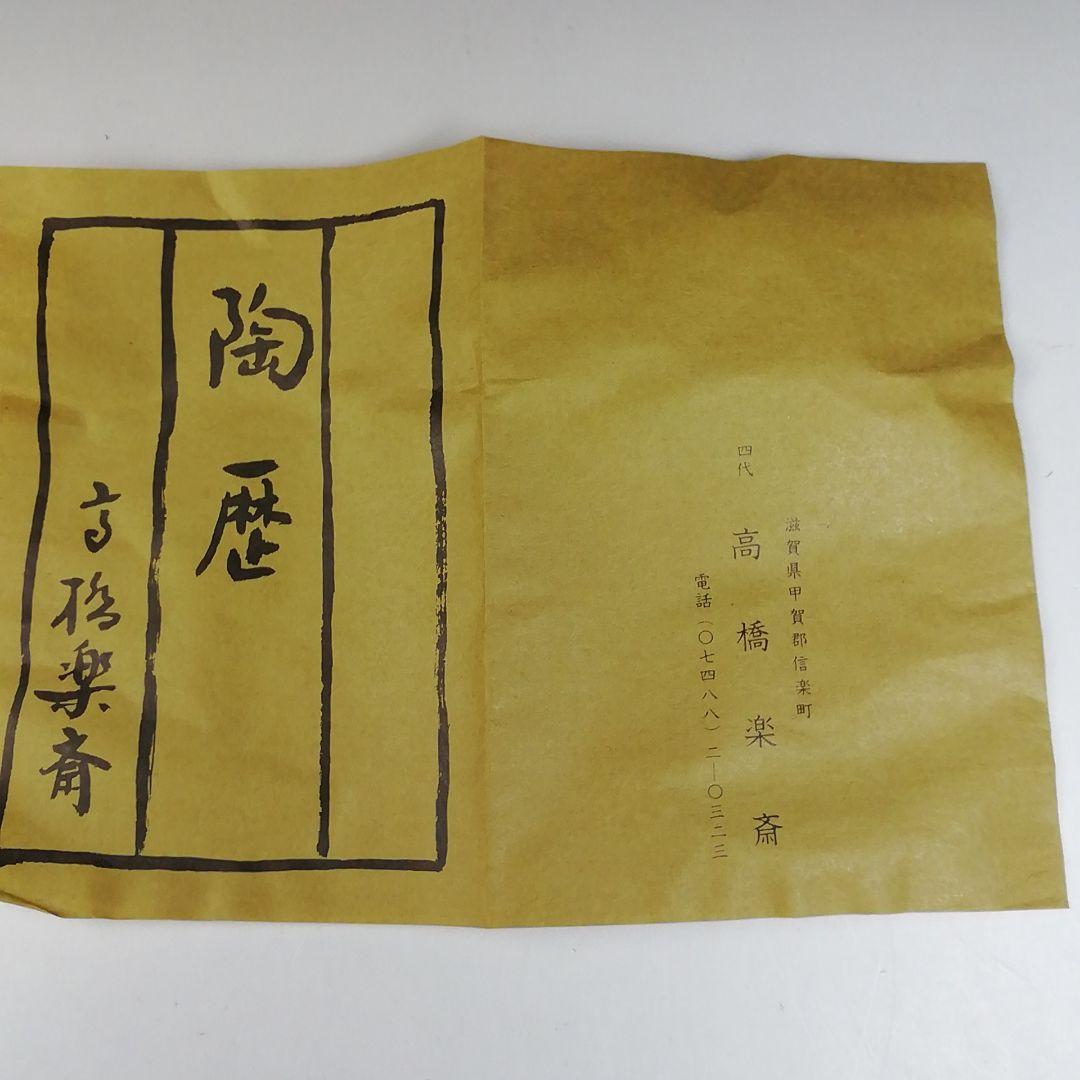 滋賀県甲賀郡信楽町
四代 高橋楽斎
電話(〇七四八八)二―〇三二三
陶歴
高橋楽斎